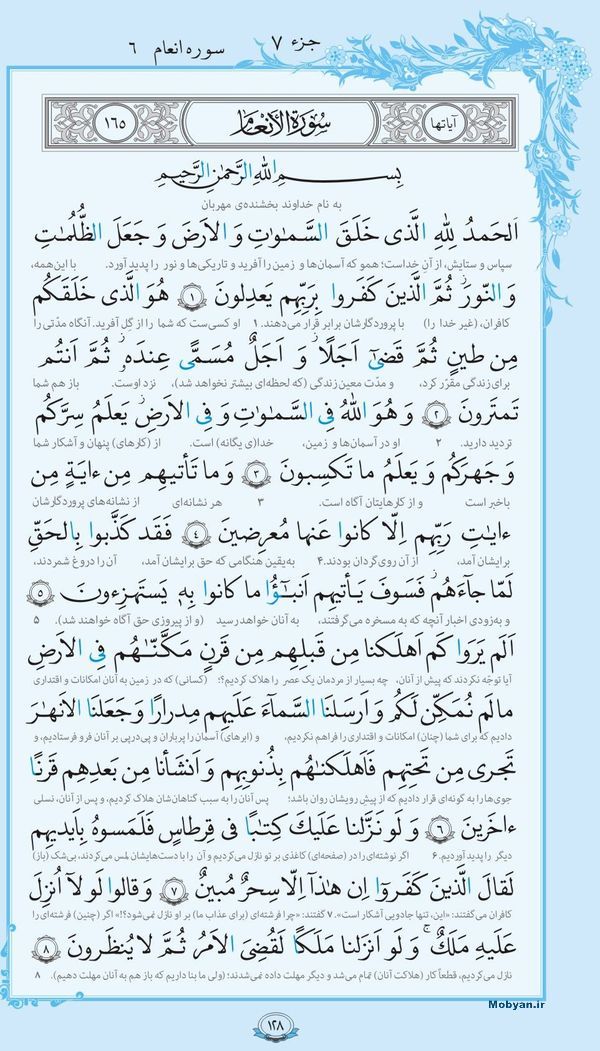 جزء ۷
سوره انعام ۶
آیاتها
سُورَةُ الأَنْعَامِ
۱۶۵
بِسمِ اللّٰهِ الرَّحمٰنِ الرَّحیمِ
به نام خداوند بخشنده‌ی مهربان
اَلحَمدُ لِلّٰهِ الَّذی خَلَقَ السَّمٰوٰتِ وَ الاَرضَ وَ جَعَلَ الظُّلُمٰتِ
سپاس و ستایش، از آنِ خداست؛ همو که آسمان‌ها و زمین را آفرید و تاریکی‌ها و نور را پدید آورد. با این‌همه،
وَ النّورَ ثُمَّ الَّذینَ کَفَروا بِرَبِّهِم یَعدِلونَ ۱ هُوَ الَّذی خَلَقَکُم
کافران، (غیر خدا را) با پروردگارشان برابر قرار می‌دهند. ۱ او کسی‌ست که شما را از گِل آفرید. آنگاه مدّتی را
مِن طینٍ ثُمَّ قَضیٰ اَجَلًا وَ اَجَلٌ مُسَمًّی عِندَهٗ ثُمَّ اَنتُم
برای زندگی مقرّر کرد، و مدّت معین زندگی (که لحظه‌ای بیشتر نخواهد شد)، نزد اوست. باز هم شما
تَمتَرونَ ۲ وَ هُوَ اللّٰهُ فِی السَّمٰوٰتِ وَ فِی الاَرضِ یَعلَمُ سِرَّکُم
تردید دارید. ۲ او در آسمان‌ها و زمین، خدا(ی یگانه) است. از (کارهای) پنهان و آشکار شما
وَ جَهرَکُم وَ یَعلَمُ ما تَکسِبونَ ۳ وَ ما تَأتیهِم مِن ءایَةٍ مِن
باخبر است و از کارهایتان آگاه است. ۳ هر نشانه‌ای از نشانه‌های پروردگارشان
ءایٰتِ رَبِّهِم اِلّا کانوا عَنها مُعرِضینَ ۴ فَقَد کَذَّبوا بِالحَقِّ
برایشان آمد، از آن روی‌گردان بودند. ۴ به‌یقین هنگامی که حق برایشان آمد، آن را دروغ شمردند،
لَمّا جاءَهُم فَسَوفَ یَأتیهِم اَنبٰٓؤُا ما کانوا بِهٖ یَستَهزِءونَ ۵
و به‌زودی اخبار آنچه که به مسخره می‌گرفتند، به آنان خواهد رسید (و از پیروزی حق آگاه خواهند شد). ۵
اَلَم یَرَوا کَم اَهلَکنا مِن قَبلِهِم مِن قَرنٍ مَکَّنّٰهُم فِی الاَرضِ
آیا توجّه نکردند که پیش از آنان، چه بسیار از مردمان یک عصر را هلاک کردیم؟؛ (کسانی) که در زمین به آنان امکانات و اقتداری
ما لَم نُمَکِّن لَکُم وَ اَرسَلنَا السَّماءَ عَلَیهِم مِدرارًا وَ جَعَلنَا الاَنهٰرَ
دادیم که برای شما (چنان) امکانات و اقتداری را فراهم نکردیم، و (ابرهای) آسمان را پرباران و پی‌درپی بر آنان فرو فرستادیم، و
تَجری مِن تَحتِهِم فَاَهلَکنٰهُم بِذُنوبِهِم وَ اَنشَأنا مِن بَعدِهِم قَرنًا
جوی‌ها را به گونه‌ای قرار دادیم که از پیش رویشان روان باشد؛ پس آنان را به سبب گناهان‌شان هلاک کردیم، و پس از آنان، نسلی
ءاخَرینَ ۶ وَ لَو نَزَّلنا عَلَیكَ کِتٰبًا فی قِرطاسٍ فَلَمَسوهُ بِاَیدیهِم
دیگر را پدید آوردیم. ۶ اگر نوشته‌ای را در (صفحه‌ای) کاغذی بر تو نازل می‌کردیم و آن را با دست‌هایشان لمس می‌کردند، بی‌شک (باز)
لَقالَ الَّذینَ کَفَروا اِن هٰذا اِلّا سِحرٌ مُبینٌ ۷ وَ قالوا لَولا اُنزِلَ
کافران می‌گفتند: «این، تنها جادویی آشکار است». ۷ گفتند: «چرا فرشته‌ای (برای عذاب ما) بر او نازل نمی‌شود؟!» اگر (چنین) فرشته‌ای را
عَلَیهِ مَلَكٌ وَ لَو اَنزَلنا مَلَکًا لَقُضِیَ الاَمرُ ثُمَّ لا یُنظَرونَ ۸
نازل می‌کردیم، قطعاً کار (هلاکت آنان) تمام می‌شد و دیگر مهلت داده نمی‌شدند؛ (ولی ما بنا داریم که باز هم به آنان مهلت دهیم). ۸
Mobyan.ir
۱۲۸